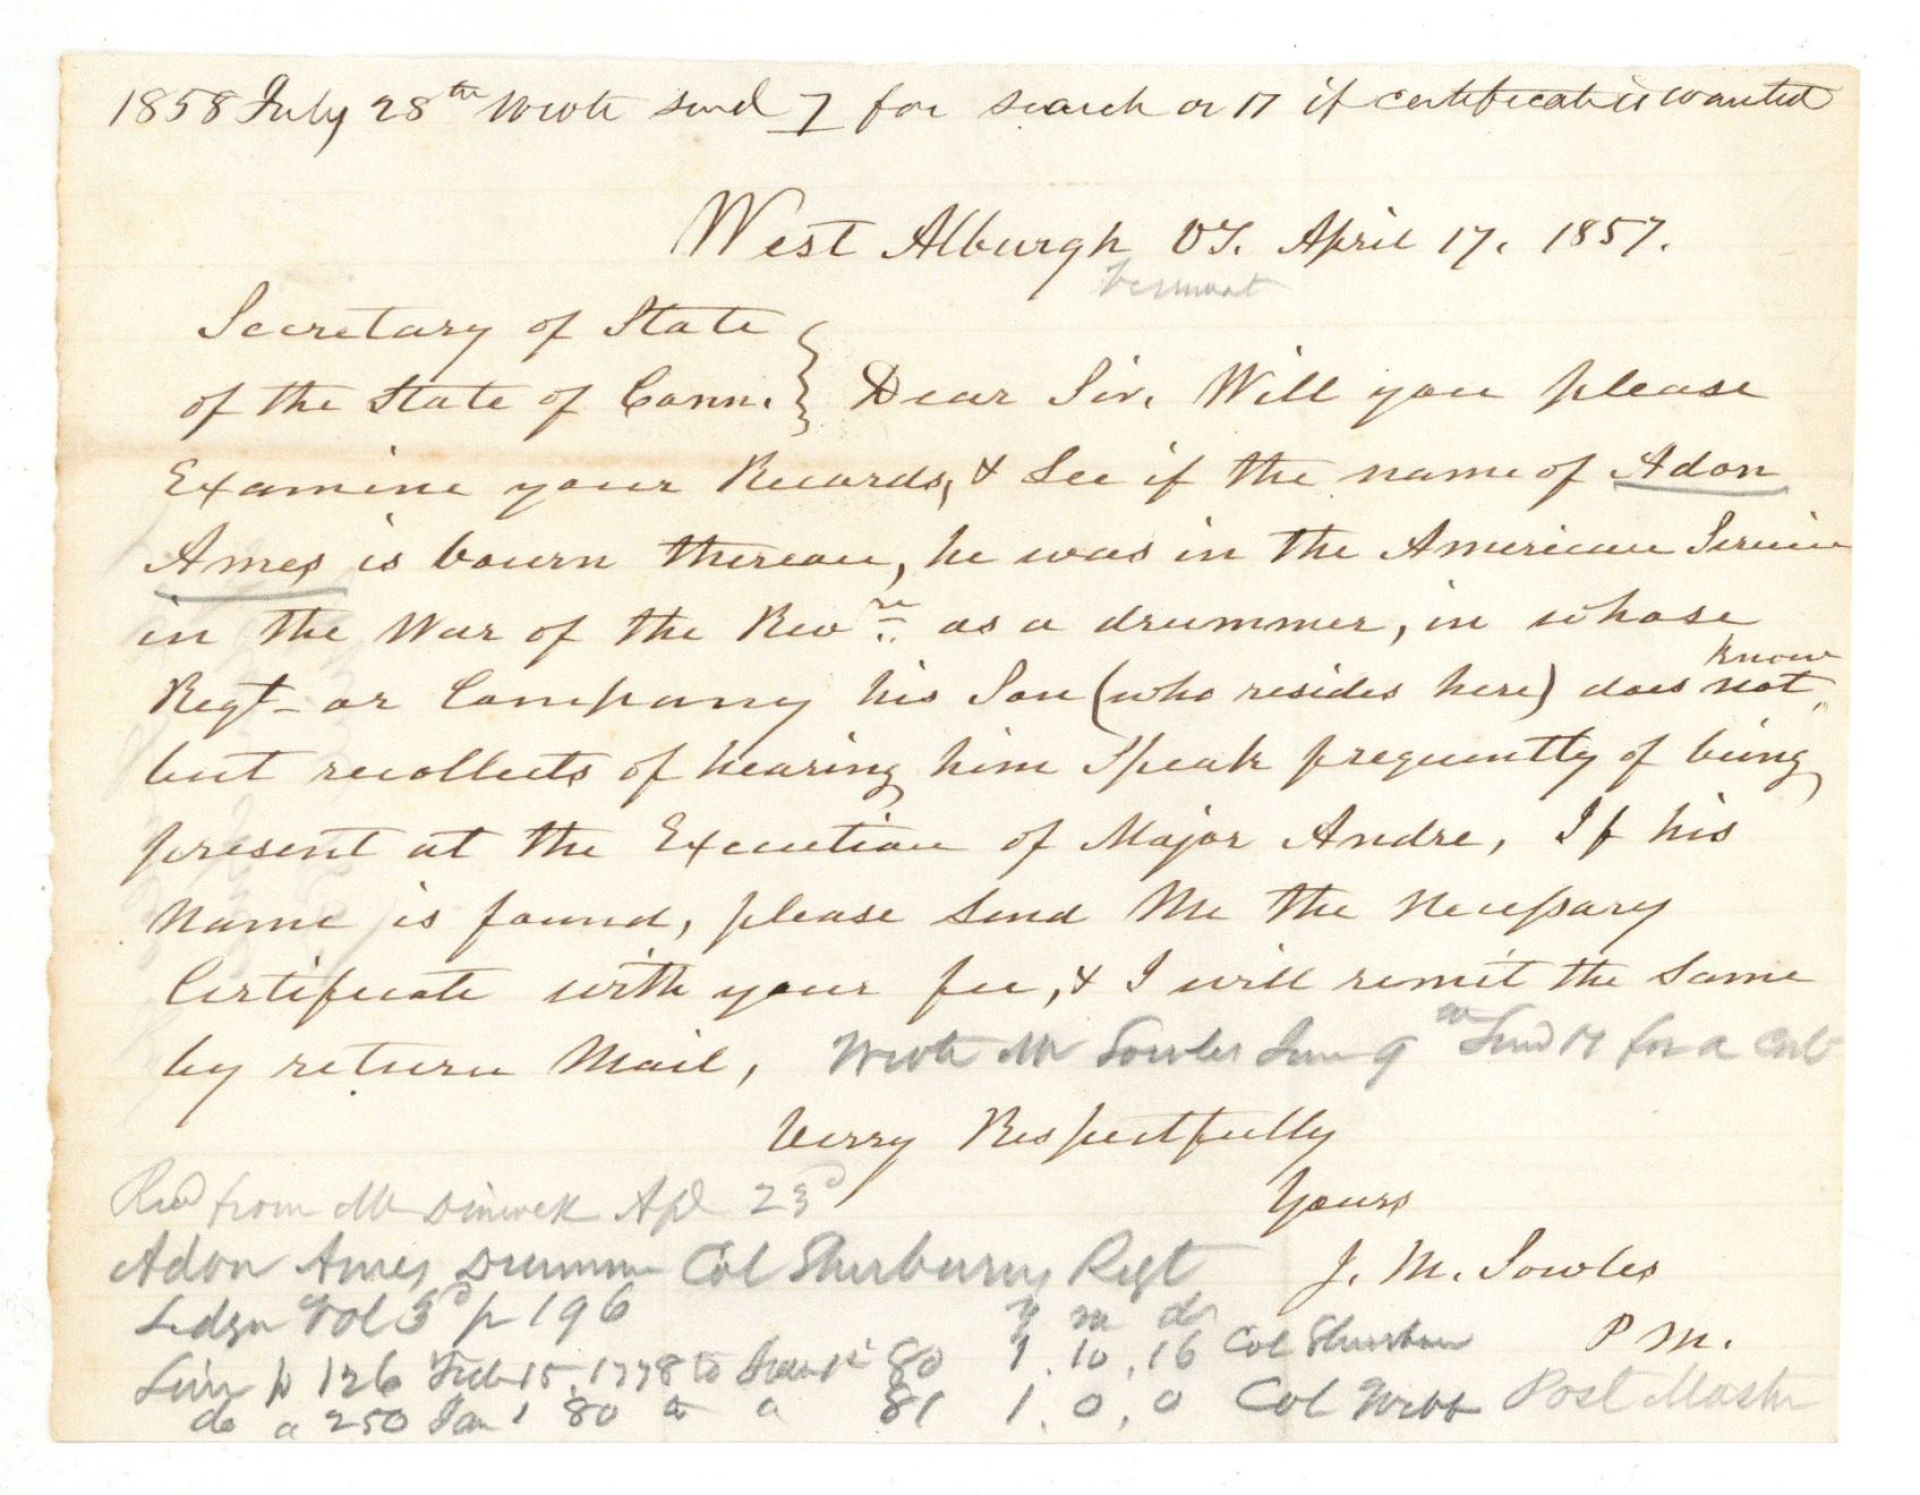 1858 July 28th Wrote send 7 for search or 17 if certificate is wanted
West Alburgh VT. April 17. 1857.
Vermont
Secretary of State
of the State of Conn. } Dear Sir. Will you please
Examine your Records, & See if the name of Adon
Ames is bourn thereon, he was in the American Service
in the War of the Revn as a drummer, in whose
Regt - or Company his Son (who resides here) does know not,
but recollects of hearing him Speak frequently of being
present at the Execution of Major Andre, If his
Name is found, please Send Me the Necessary
Certificate with your fee, & I will remit the Same
by return Mail, Wrote Mr Sowles 9 Send 17 for a
Verry Respectfully
Yours
J. M. Sowles
P M.
Post Master
Recd from Mr Apl 23d
Adon Ames Drummer Col Sherburns Regt
Ledger Vol 3d p 196
y m d
p 126 Feb 15, 1778 to 80 1. 10. 16 Col Sherburn
do 250 Jan 1 80 to 81 1. 0. 0 Col Webb